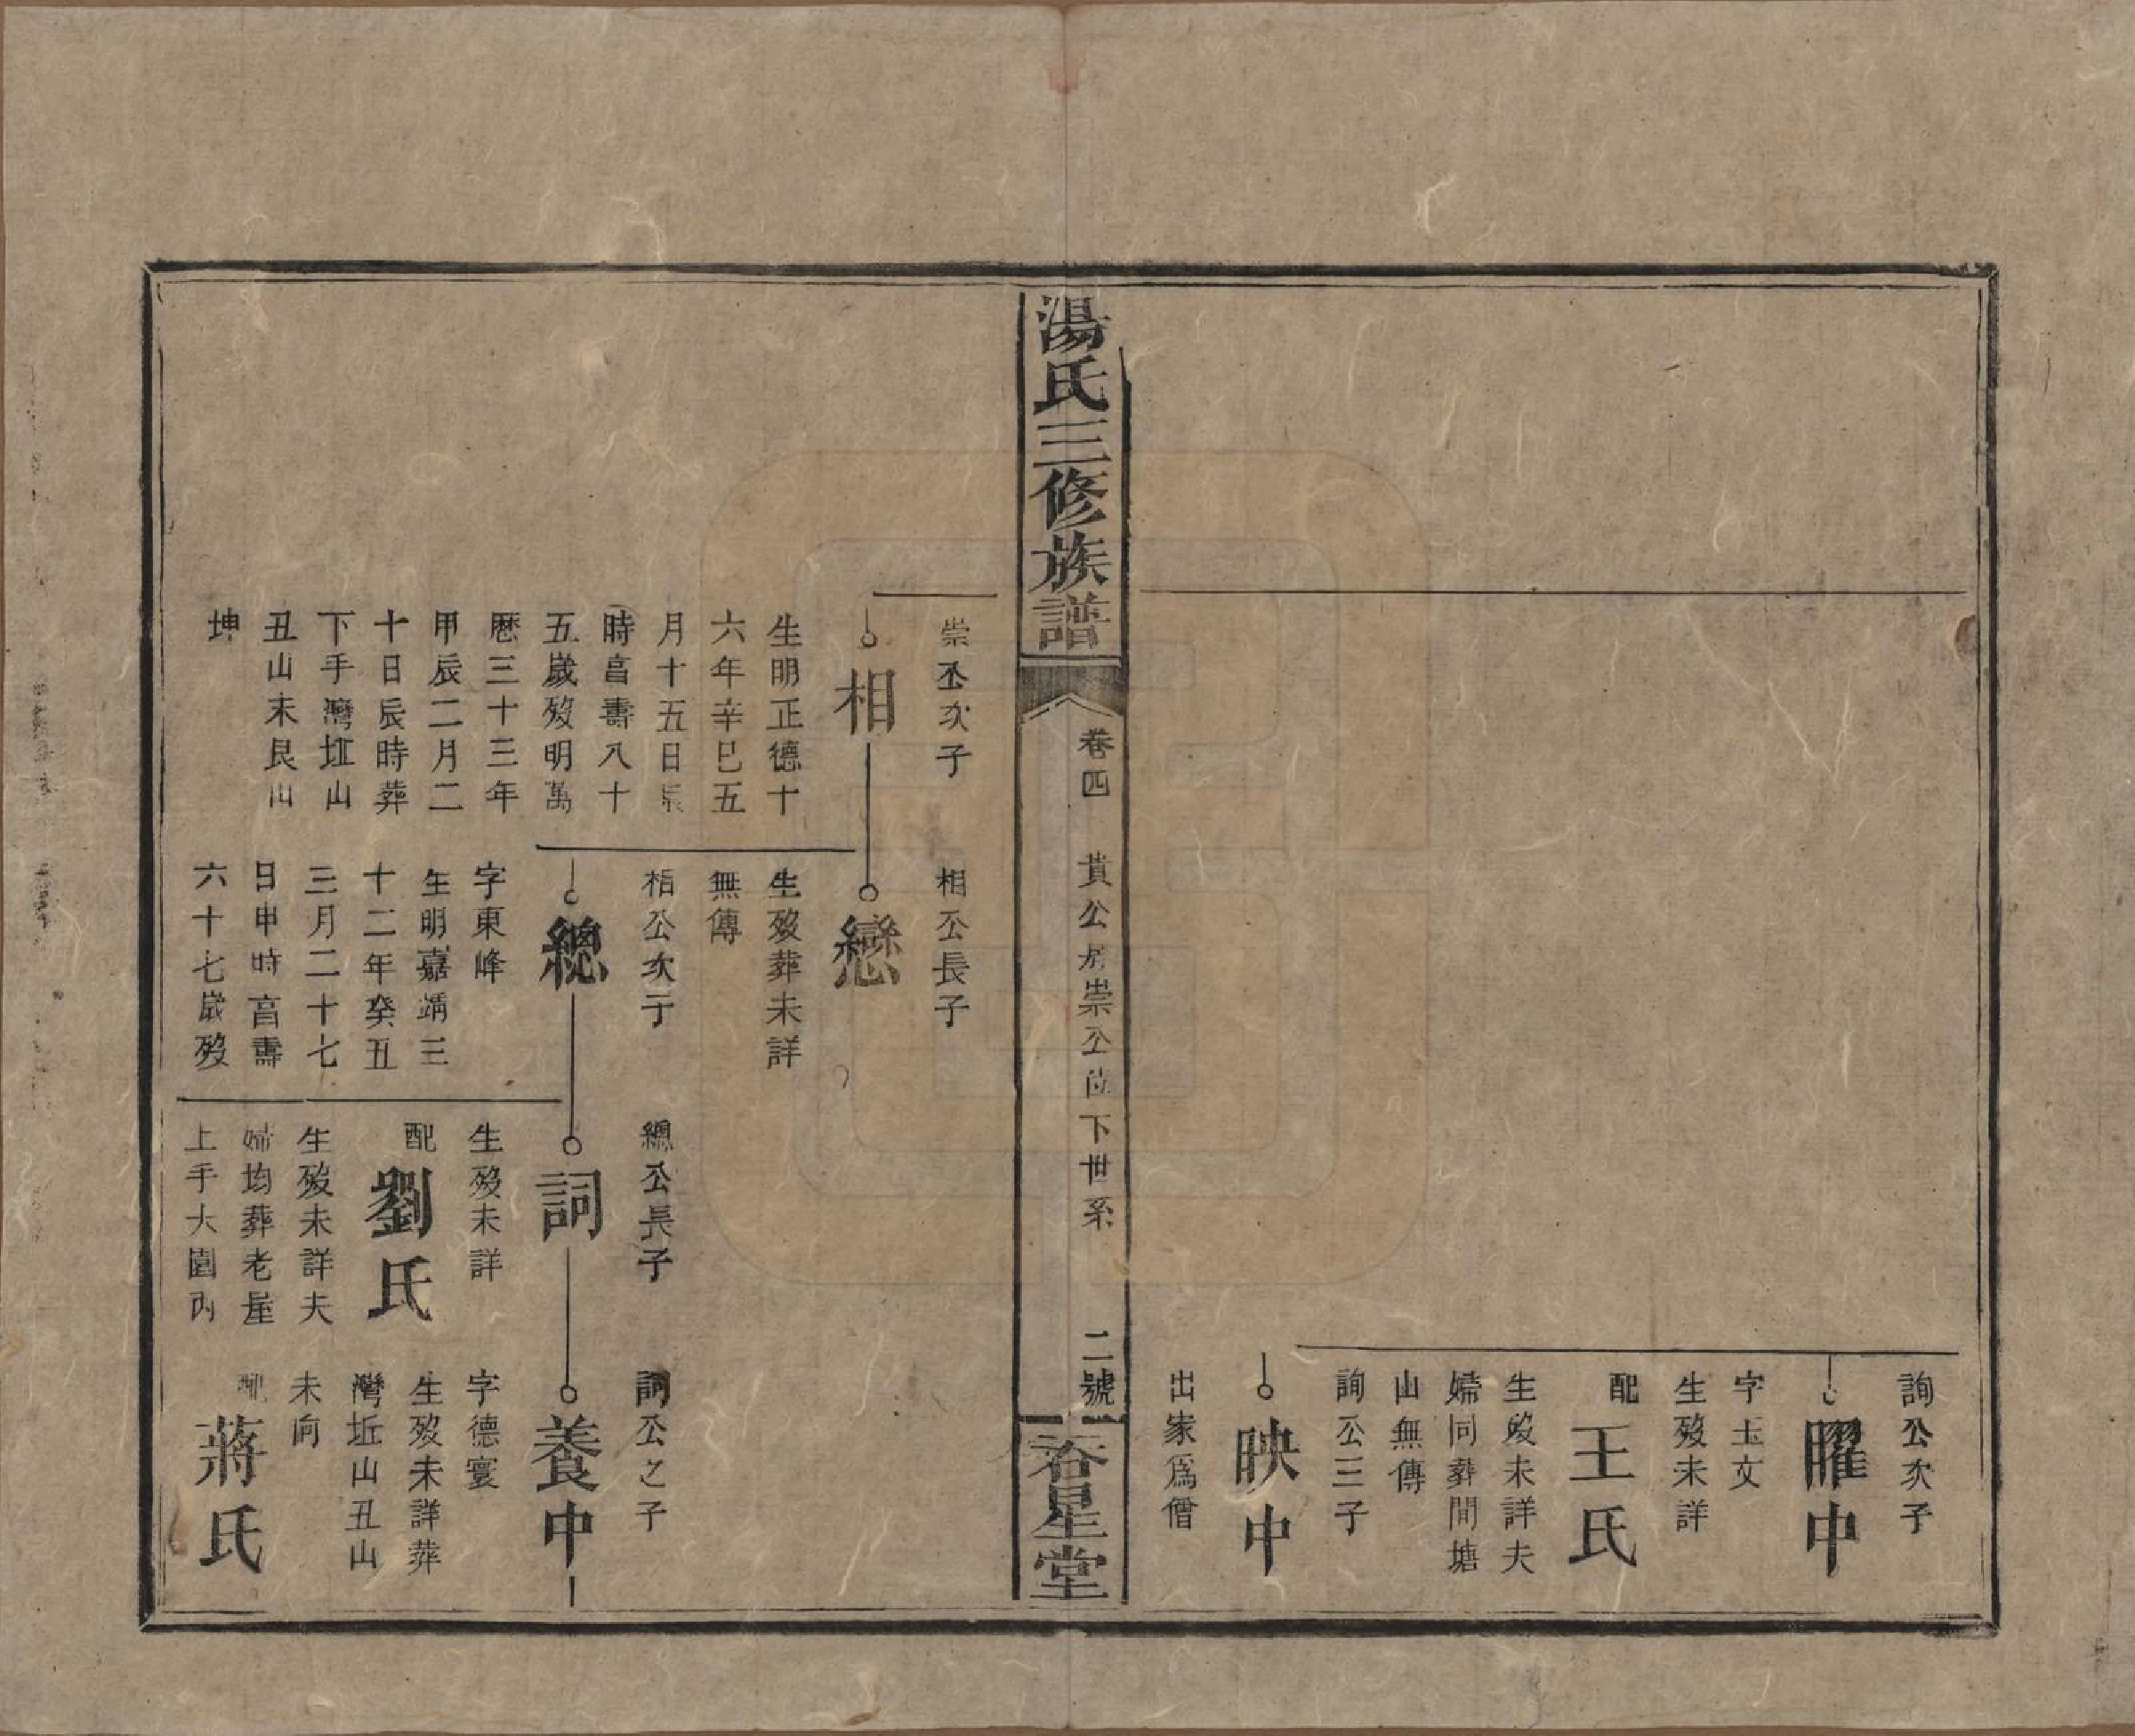 詢公次子
曜中
字玉文
生歿未詳
配
王氏
生歿未詳夫
婦同葬間塘
山無傳
詢公三子
映中
出家爲僧
湯氏三修族譜
卷四
貴公房崇公位下世系
二號
春星堂
崇公次子
相
生明正德十
六年辛巳五
月十五日辰
時享壽八十
五歲歿明萬
厯三十三年
甲辰二月二
十日辰時葬
下手灣坵山
丑山未艮山
坤
相公長子
戀
生歿葬未詳
無傳
相公次子
總
字東峰
生明嘉靖三
十二年癸丑
三月二十七
日申時享壽
六十七歲歿
總公長子
詞
生歿未詳
配
劉氏
生歿未詳夫
婦均葬老屋
上手大園內
詞公之子
養中
字德寰
生歿未詳葬
灣坵山丑山
未向
配
蔣氏